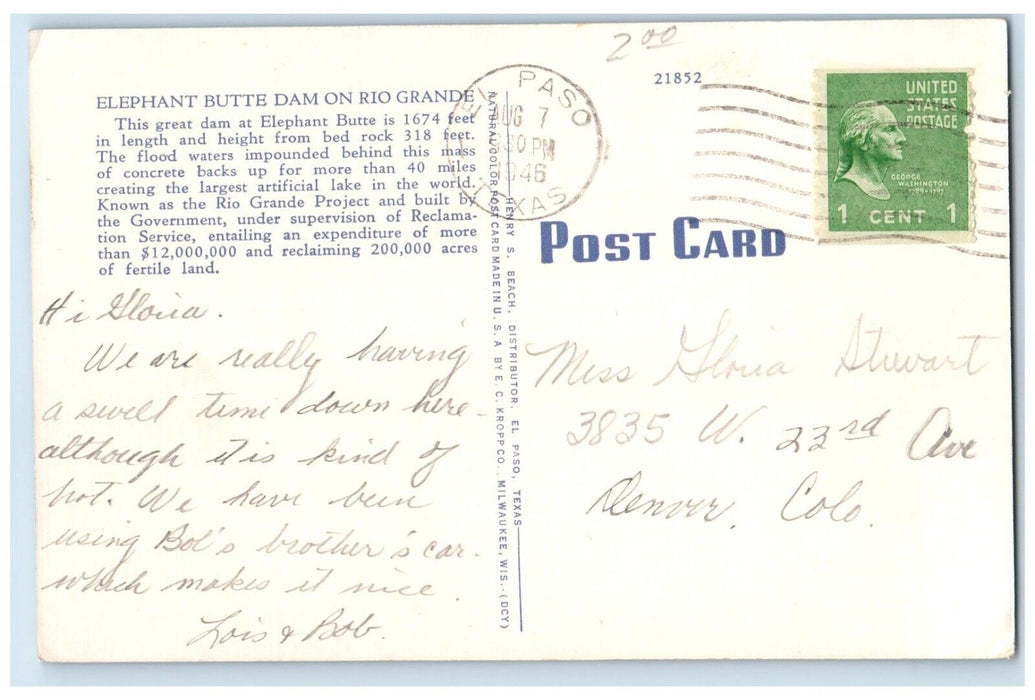 2 00
21852
EL PASO
AUG 7
30 PM
1946
TEXAS
UNITED
STATES
POSTAGE
GEORGE
WASHINGTON
1789-1797
1 CENT 1
ELEPHANT BUTTE DAM ON RIO GRANDE
This great dam at Elephant Butte is 1674 feet
in length and height from bed rock 318 feet.
The flood waters impounded behind this mass
of concrete backs up for more than 40 miles
creating the largest artificial lake in the world.
Known as the Rio Grande Project and built by
the Government, under supervision of Reclama-
tion Service, entailing an expenditure of more
than $12,000,000 and reclaiming 200,000 acres
of fertile land.
Hi Gloria.
We are really having
a swell time down here -
although it is kind of
hot. We have been
using Bob's brother's car -
which makes it nice.
Lois & Bob.
NATURAL COLOR POST CARD MADE IN U. S. A BY E. C. KROPP CO., MILWAUKEE, WIS. (DCY)
HENRY S. BEACH, DISTRIBUTOR. EL PASO, TEXAS
POST CARD
Miss Gloria Stewart
3835 W. 23rd Ave
Denver, Colo.